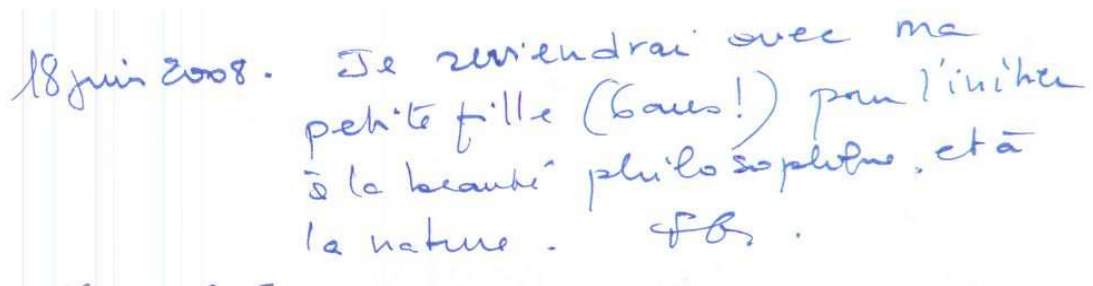 18 juin 2008. Je reviendrai avec ma
petite fille (6 ans!) pour l'initier
à la beauté philosophique, et à
la nature.